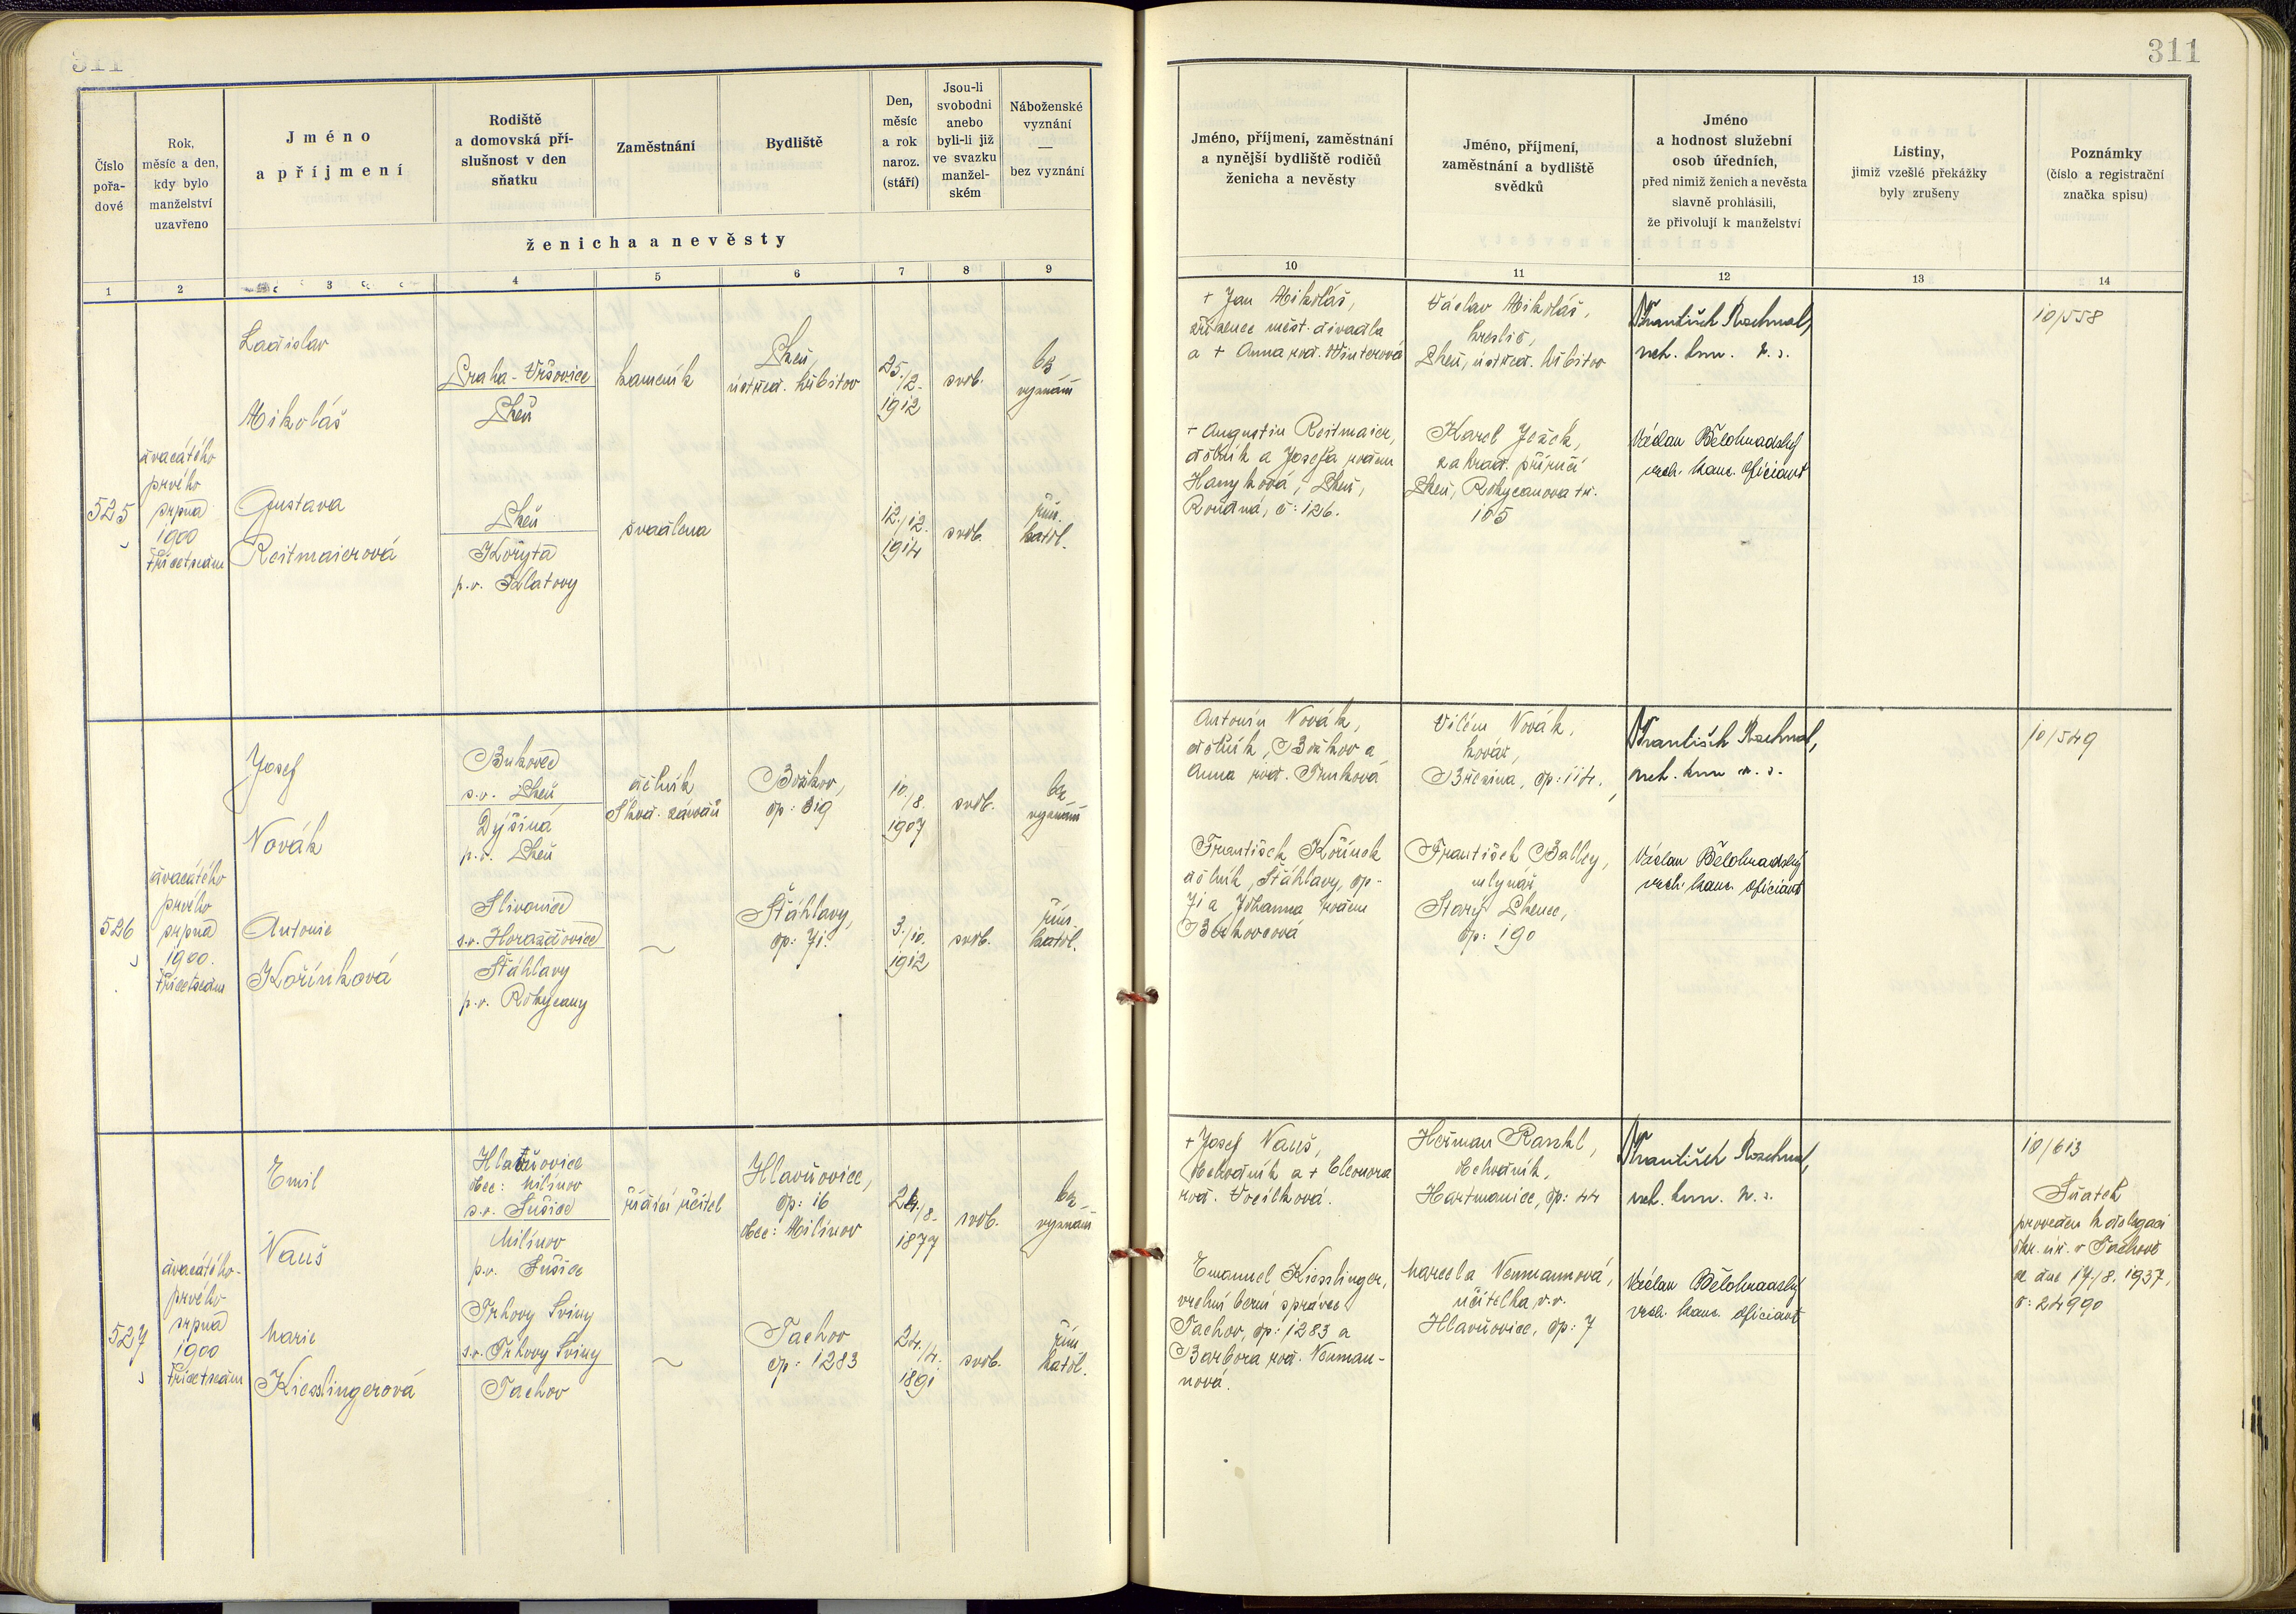 311
Číslo
pořa-
dové
Rok,
měsíc a den,
kdy bylo
manželství
uzavřeno
Jméno
a příjmení
Rodiště
a domovská pří-
slušnost v den
sňatku
Zaměstnání
Bydliště
Den,
měsíc
a rok
naroz.
(stáří)
Jsou-li
svobodni
anebo
byli-li již
ve svazku
manžel-
ském
Náboženské
vyznání
—
bez vyznání
ženicha a nevěsty
1 2 3 4 5 6 7 8 9
525
dvacátého
prvého
srpna
1900
třicetsedm
Ladislav
Mikoláš
Praha-Vršovice
Plzeň
kameník
Plzeň,
ústřed. hřbitov
25./2.
1912
svob.
bez
vyznání
Gustava
Reitmaierová
Plzeň
Koryta
p.o. Klatovy
švadlena
12./12.
1914
svob.
řím.
katol.
526
dvacátého
prvého
srpna
1900.
třicetsedm
Josef
Novák
Bukovec
s.o. Plzeň
Dýšina
p.o. Plzeň
dělník
Škod. závodů
Božkov,
čp: 319
10./8.
1907
svob.
bez
vyznání
Antonie
Kořínková
Slivonice
s.o. Horažďovice
Šťáhlavy
p.o. Rokycany
~
Šťáhlavy,
čp: 71
3./10.
1912
svob.
řím.
katol.
527
dvacátého-
prvého
srpna
1900
třicetsedm
Emil
Nauš
Hlavňovice
obec: Milínov
s.o. Sušice
Milínov
p.o. Sušice
řídící učitel
Hlavňovice,
čp: 16
obec: Milínov
24./8.
1877
svob.
bez
vyznání
Marie
Kiesslingerová
Trhovy Sviny
s.o. Trhovy Sviny
Tachov
~
Tachov
čp: 1283
24./4.
1891
svob.
řím.
katol.
311
Jméno, příjmení, zaměstnání
a nynější bydliště rodičů
ženicha a nevěsty
Jméno, příjmení,
zaměstnání a bydliště
svědků
Jméno
a hodnost služební
osob úředních,
před nimiž ženich a nevěsta
slavně prohlásili,
že přivolují k manželství
Listiny,
jimiž vzešlé překážky
byly zrušeny
Poznámky
(číslo a registrační
značka spisu)
10 11 12 13 14
+ Jan Mikoláš,
zřízenec měst. divadla
a + Anna rod. Winterová
Václav Mikoláš,
kreslič,
Plzeň, ústřed. hřbitov
František
10/558
+ Augustin Reitmaier,
dělník a Josefa rodem
Hanyková, Plzeň,
Roudná, č: 126.
Karel Ježek,
zahrad. příručí
Plzeň, Rokycanova tř.
105
Václav Bělohradský
vrch. kanc. oficiant
Antonín Novák,
dělník, Božkov a
Anna rod. Trnková
Vilém Novák,
kovář,
Březina, čp: 114.
František
10/549
František Kořínek
dělník, Šťáhlavy, čp.
71 a Johanna rodem
Bukovcová
František Balley,
mlynář,
Starý Plzenec,
čp: 190
Václav Bělohradský
vrch. kanc. oficiant
+ Josef Nauš,
obchodník a + Eleonora
rod. Vocílková.
Heřman Raschl,
obchodník,
Hartmanice, čp: 44
František
10/613
Sňatek
proveden k delegaci
okr. úř. v Tachově
ze dne 17./8. 1937,
č: 24990
Emanuel Kiesslinger,
vrchní berní správce
Tachov, čp: 1283 a
Barbora rod. Neuman-
nová.
Marcela Neumannová,
učitelka v.v.
Hlavňovice, čp: 7
Václav Bělohradský
vrch. kanc. oficiant